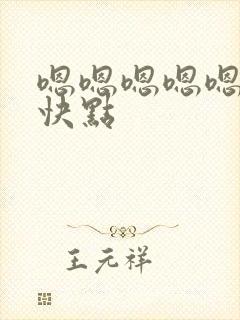 嗯嗯嗯嗯嗯
快點
王元祥